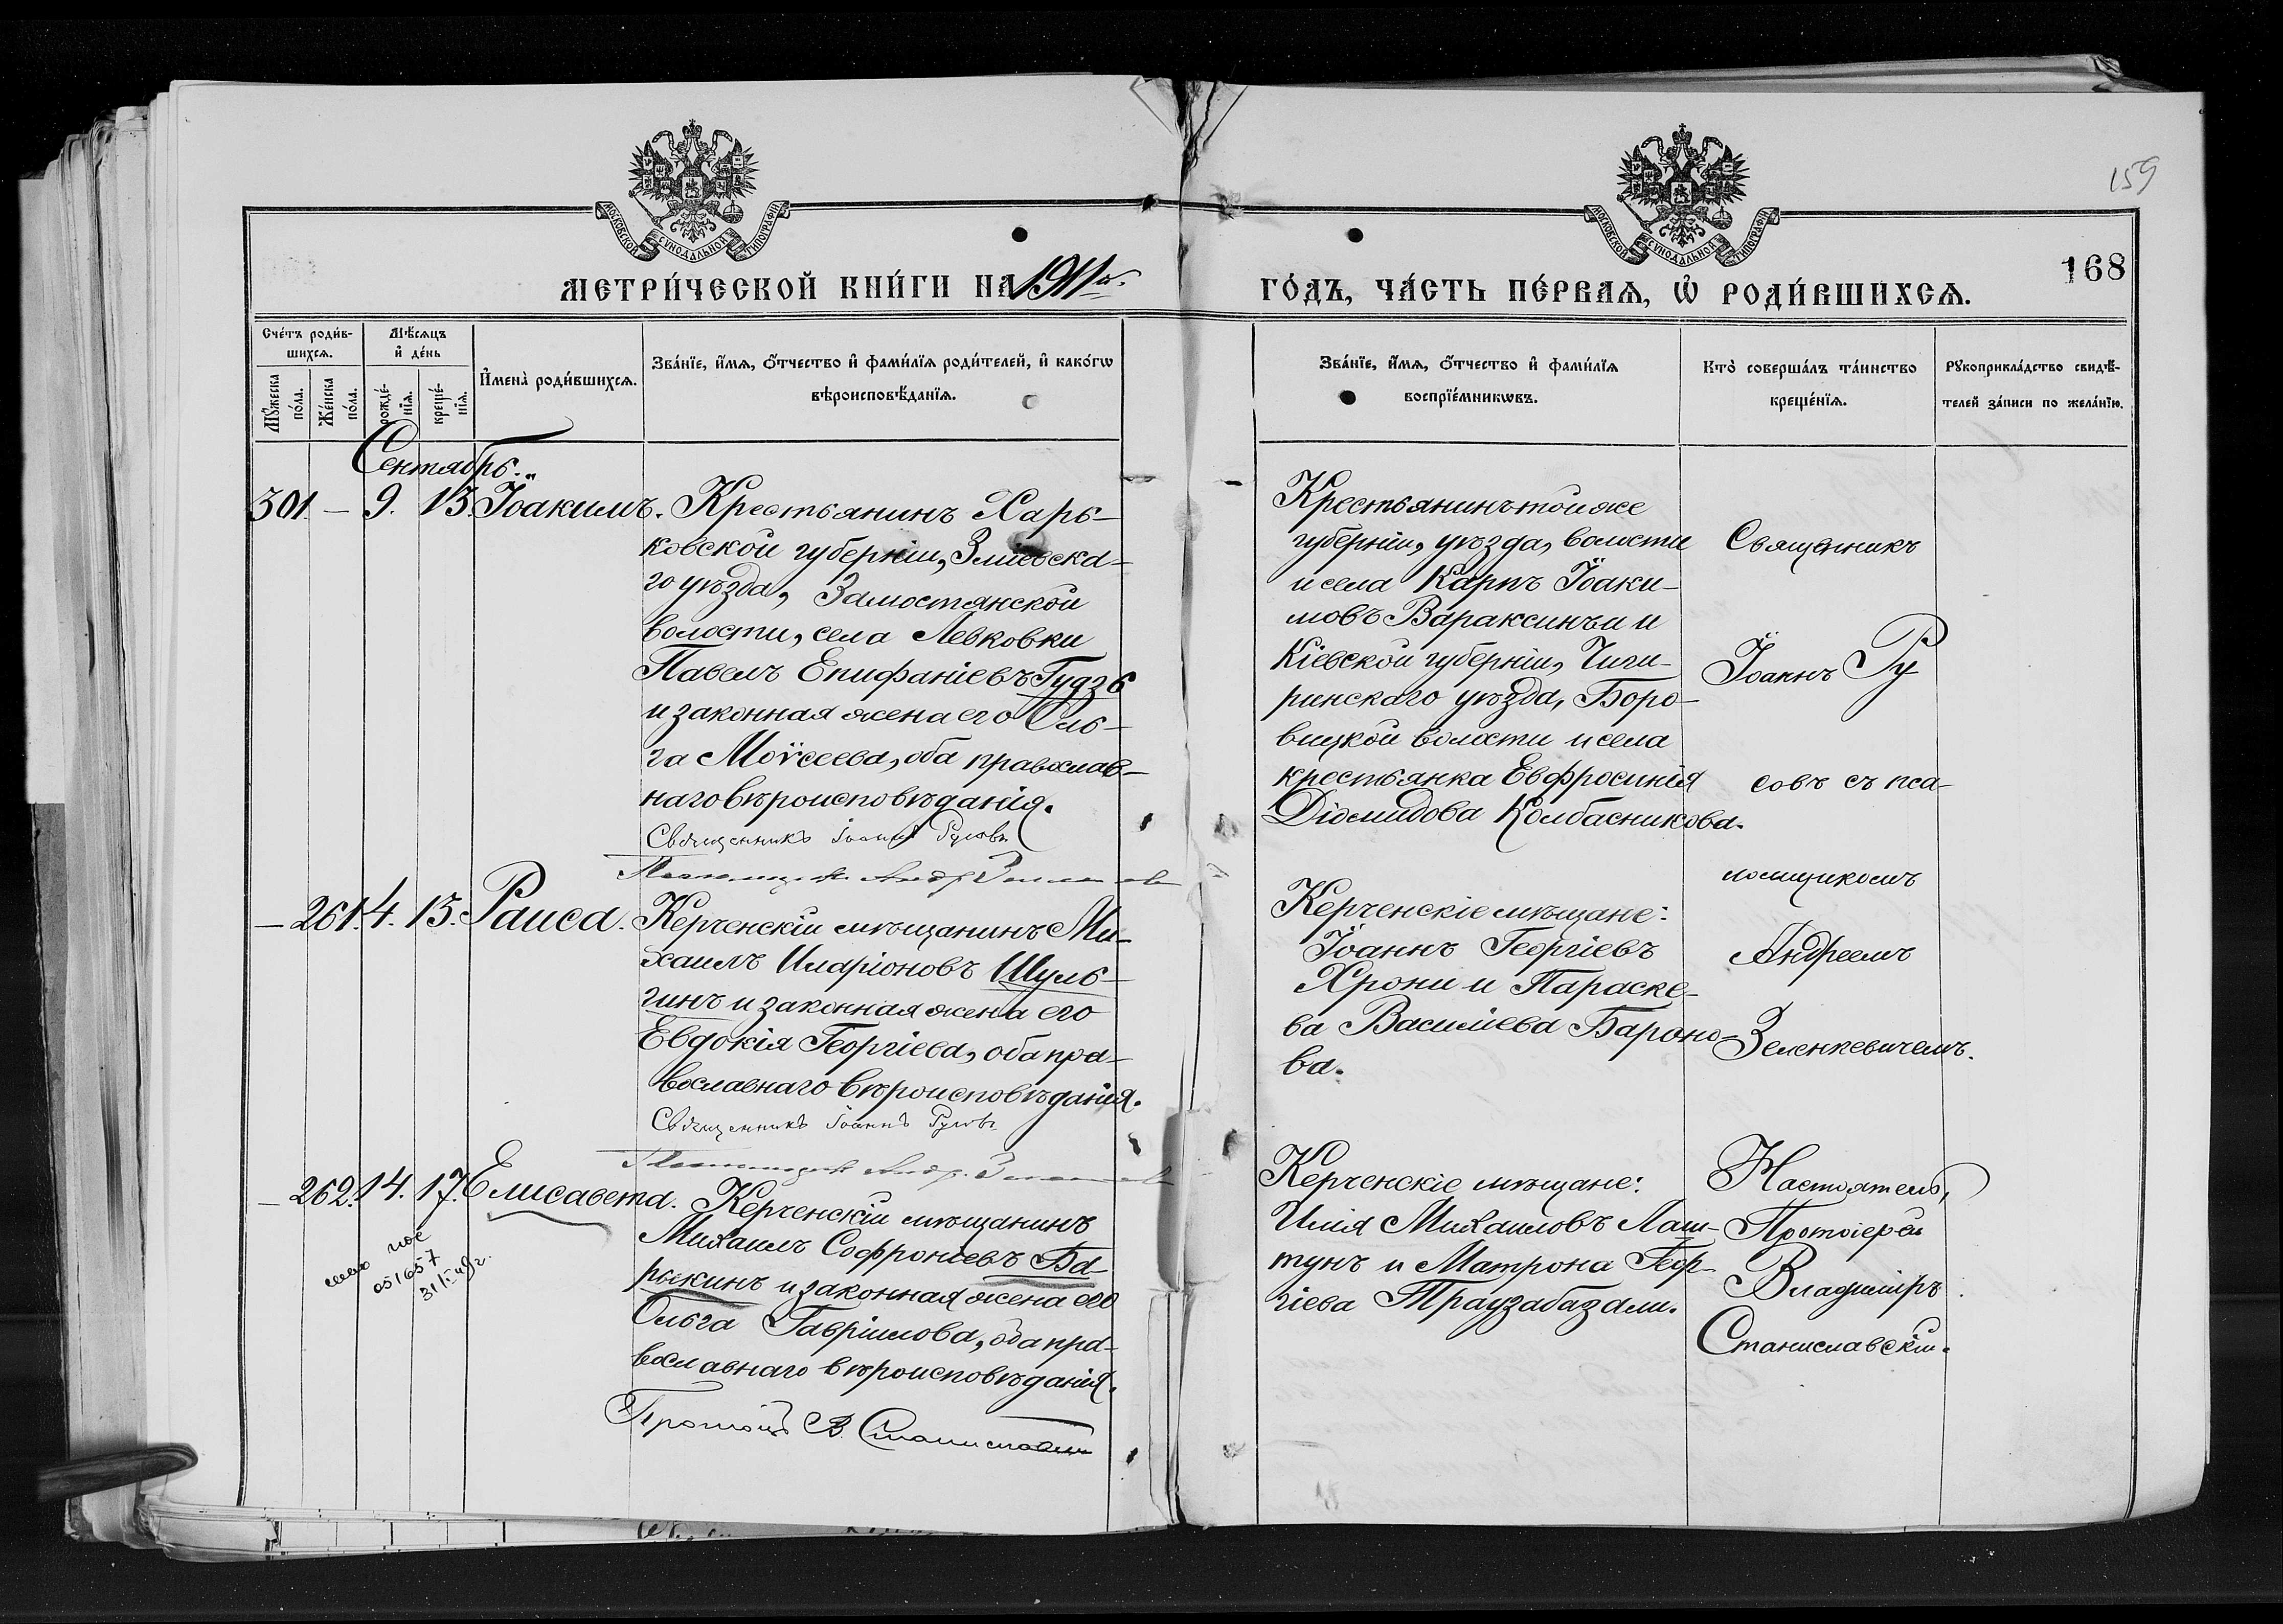 159
168
МОСКОВСКОЙ СѴНОДАЛЬНОЙ ТИПОГРАФІИ
МОСКОВСКОЙ СѴНОДАЛЬНОЙ ТИПОГРАФІИ
МЕТРИ́ЧЕСКОЙ КНИ́ГИ НА 1911й.
ГО́ДЪ, ЧА́СТЬ ПЕ́РВАѦ, Ѽ РОДИ́ВШИХСѦ.
Сче́тъ роди́в-
шихсѧ.
Мꙋ́жеска
по́ла.
Же́нска
по́ла.
Мѣ́сѧцъ
и҆ де́нь
рожде́-
нїѧ.
креще́-
нїѧ.
И҆мена̀ роди́вшихсѧ.
Зва́нїе, и҆́мѧ, ѻ҆́тчество и҆ фами́лїѧ роди́телей, и҆ како́гѡ
вѣроисповѣ́данїѧ.
Зва́нїе, и҆́мѧ, ѻ҆́тчество и҆ фами́лїѧ
воспрїе́мникѡвъ.
Кто̀ соверша́лъ та́инство
креще́нїѧ.
Рꙋкоприкла́дство свидѣ́-
телей за́писи по жела́нїю.
Сентябрь.
301. — 9. 13. Іоакимъ.
Крестьянинъ Харь-
ковской губерніи, Зміевска-
го уѣзда, Замостянской
волости, села Левковки
Павелъ Епифаніевъ Гудзь
и законная жена его Оль-
га Моѵсеева, оба православ-
наго вѣроисповѣданія.
Священникъ Іоаннъ Русовъ
Псаломщикъ Андр.
Крестьянинъ той же
губерніи, уѣзда, волости
и села Карпъ Іоаки-
мовъ Вараксинъ и
Кіевской губерніи, Чиги-
ринскаго уѣзда, Боро-
вицкой волости и села
крестьянка Евфросинія
Діомидова Колбасникова.
Священникъ
Іоаннъ Ру
совъ съ пса-
ломщикомъ
Андреемъ
Зеленкевичемъ.
— 261. 4. 13. Раиса.
Керченскій мѣщанинъ Ми-
хаилъ Иларіоновъ Шуль-
гинъ и законная жена его
Евдокія Георгіева, оба пра-
вославнаго вѣроисповѣданія.
Священникъ Іоаннъ Русовъ
Псаломщикъ Андр.
Керченскіе мѣщане:
Іоаннъ Георгіевъ
Хрони и Параске-
ва Василіева Бароно-
ва.
— 262. 14. 17. Елисавета.
051657
31/I 49 г.
Керченскій мѣщанинъ
Михаилъ Софроніевъ Ба-
рыкинъ и законная жена его
Ольга Гавріилова, оба пра-
вославнаго вѣроисповѣданія.
В. Станиславскій
Керченскіе мѣщане:
Илія Михаиловъ Лаш-
тунъ и Матрона Геор-
гіева Траузабазали.
Настоятель,
Протоіерей
Владиміръ
Станиславскій.